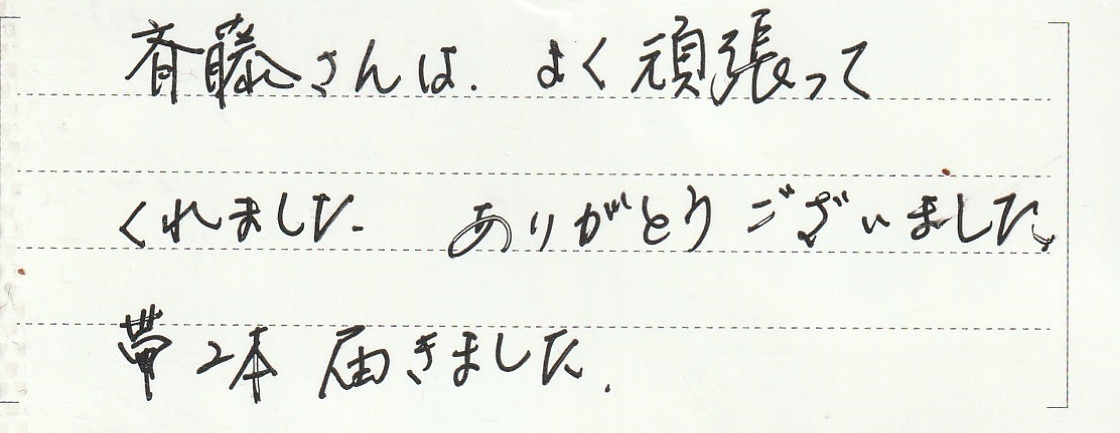 斉藤さんは、よく頑張って
くれました。 ありがとうございました。
帯2本 届きました。